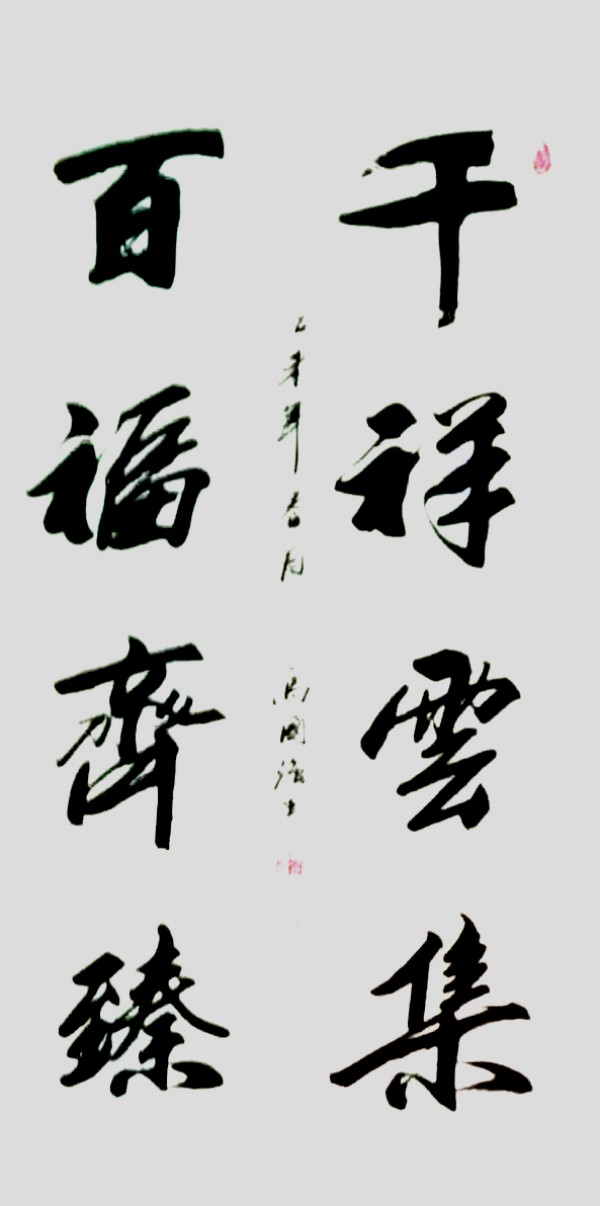 千祥雲集
百福齊臻
乙未年春月